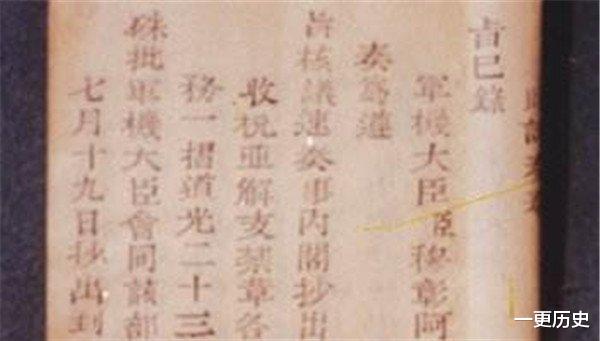 旨已錄
軍機大臣臣穆彰阿
奏為遵
旨核議速奏事內閣抄出
收稅解支禁章各
務一摺道光二十三
硃批軍機大臣會同該部
七月十九日抄出到
一更历史